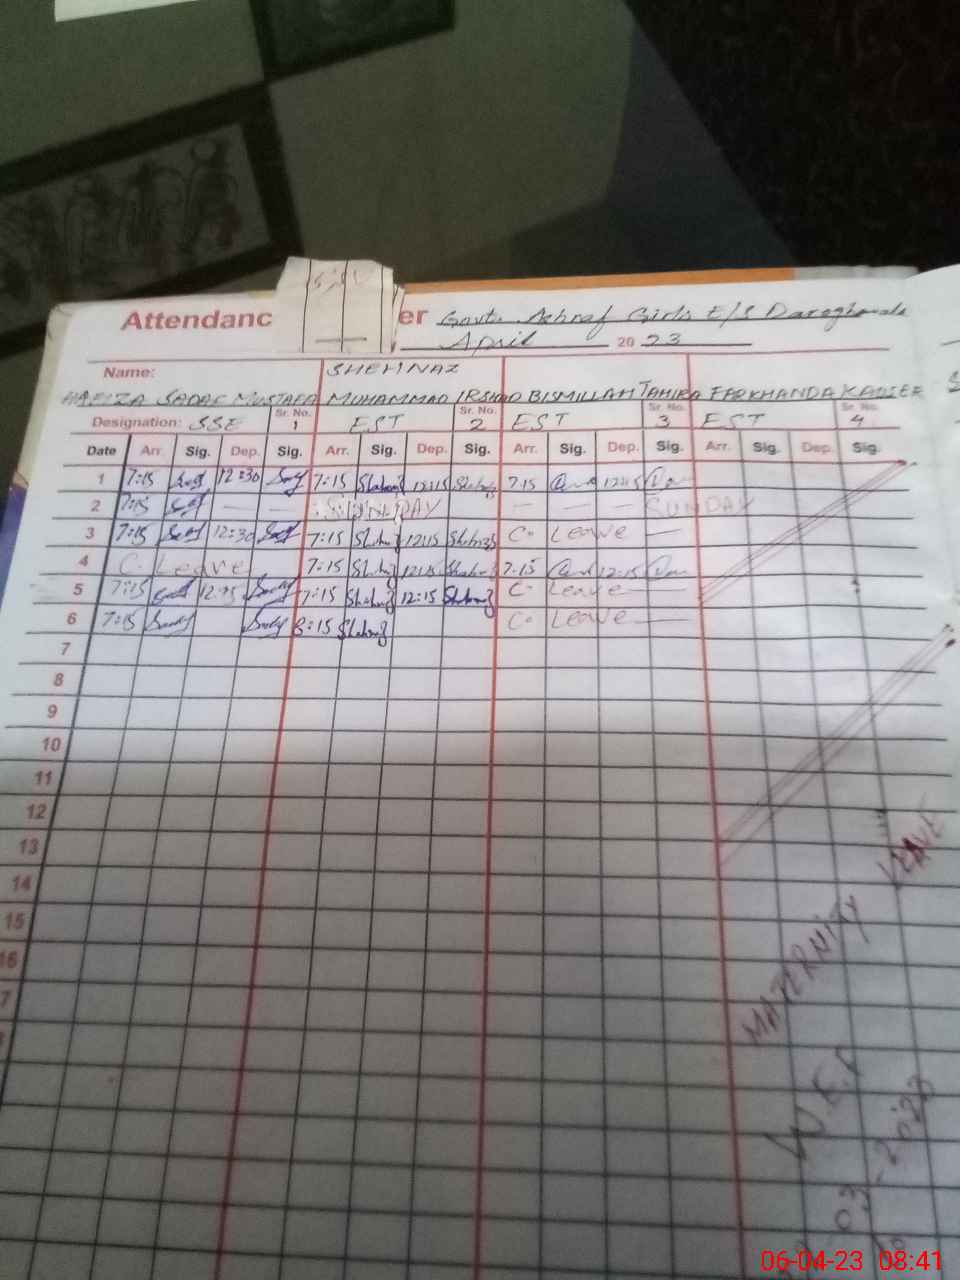 Attendanc er Govt. Ashraf Girls E/S Daroghawala
April 2023
Name: SHEHNAZ
HAFIZA SADAF MUSTAFA MUHAMMAD IRSHAD BISMILLAH TAHIRA FARKHANDA KAUSER
Designation: SSE Sr. No. 1 EST Sr. No. 2 EST Sr. No. 3 EST Sr. No. 4
Date Arr. Sig. Dep. Sig. Arr. Sig. Dep. Sig. Arr. Sig. Dep. Sig. Arr. Sig. Dep. Sig.
1 7:15 12:30 7:15 Shahnaz 12:15 Shahnaz 7.15 12:15
2 7:15 — — SUNDAY — — — SUNDAY
3 7:15 12:30 7:15 Shahnaz 12:15 Shahnaz C- Leave —
4 C- Leave 7:15 Shahnaz 12:15 Shahnaz 7.15 12:15
5 7:15 12:15 7:15 Shahnaz 12:15 Shahnaz C- Leave —
6 7:15 8:15 Shahnaz C- Leave —
7
8
9
10
11
12
13
14
15
16
7
MATERNITY LEAVE
W.E.F
03-2023
06-04-23 08:41